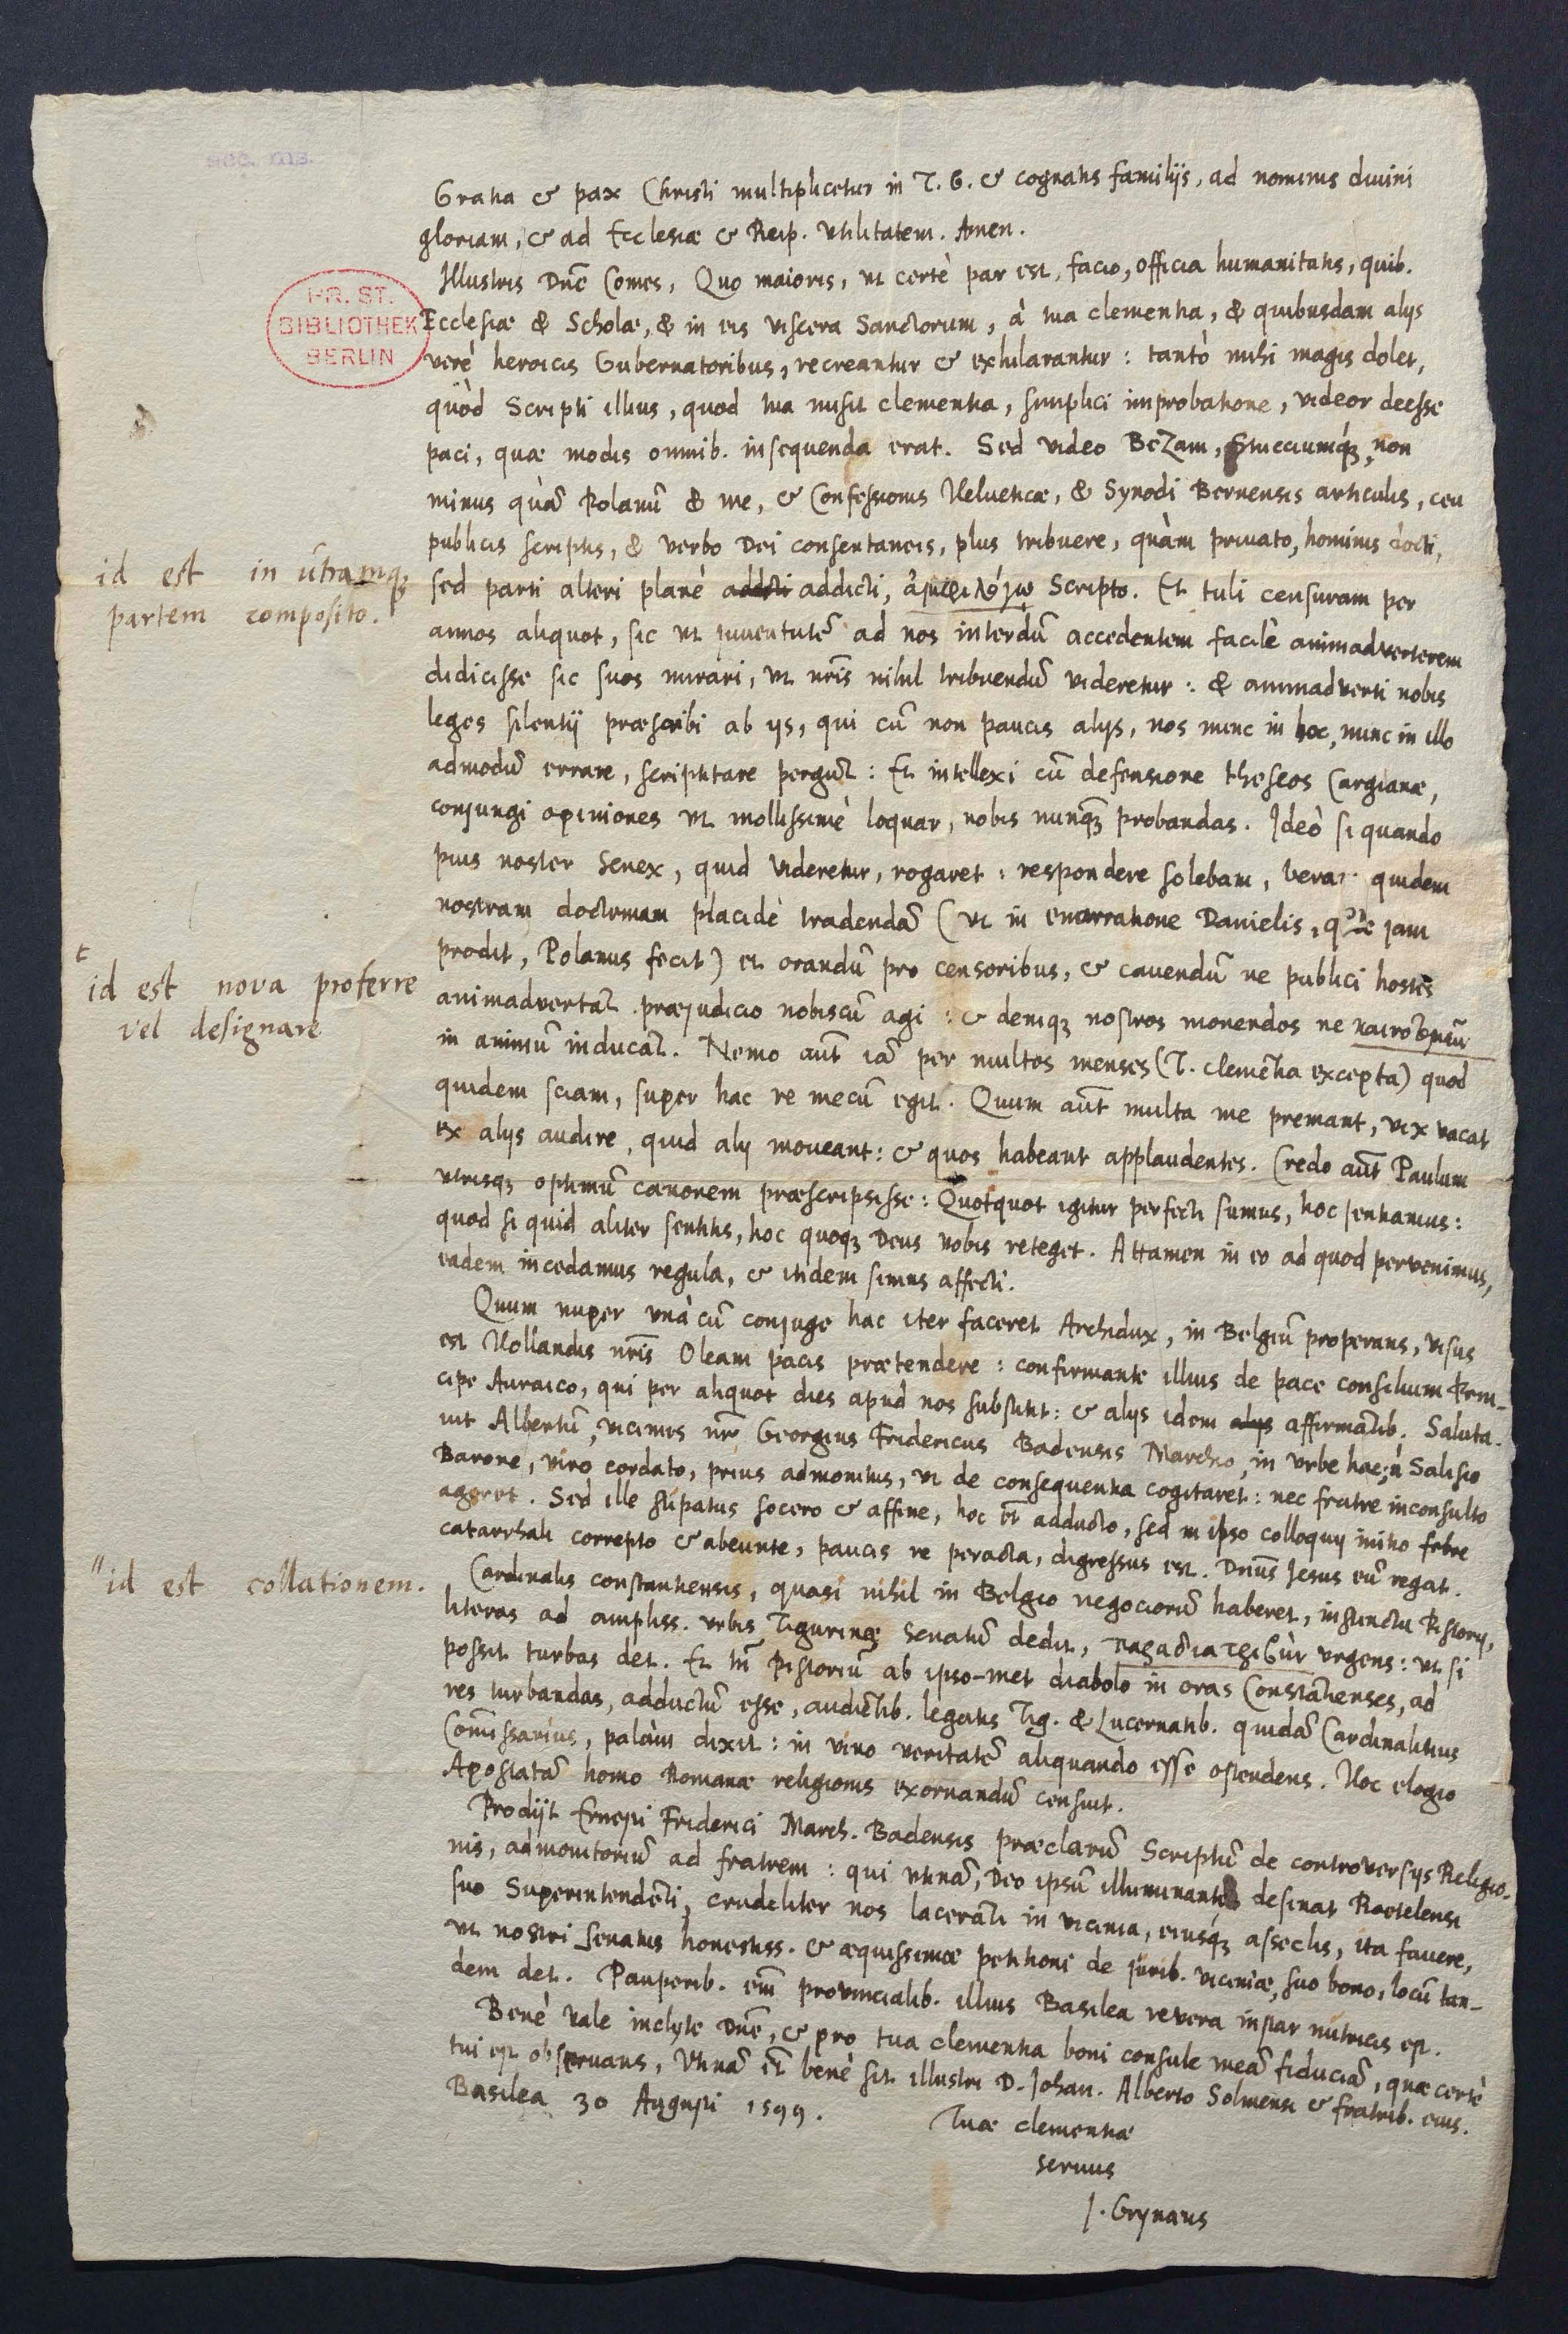 acc. ms.
Gratia & pax Christi multiplicetur in T. G. & cognatis familijs, ad nominis divini
gloriam, & ad Ecclesiæ & Reip. utilitatem. Amen.
Illustris Dnē Comes, Quo maioris, ut certè par est, facio, officia humanitatis, quib.
PR. ST.
BIBLIOTHEK
BERLIN
Ecclesiæ & Scholæ, & in eis viscera Sanctorum, à tua clementia, & quibusdam alijs
verè heroicis Gubernatoribus, recreantur & exhilarantur: tantò mihi magis dolet,
quòd Scripti illius, quod tua misit clementia, simplici improbatione, videor deesse
paci, quæ modis omnib. insequenda erat. Sed video Bezam, non
minus quā Polanū & me, & Confessionis Helveticæ, & Synodi Bernensis articulis, ceu
publicis scriptis, & verbo Dei consentaneis, plus tribuere, quàm privato, hominis docti,
id est in ūtramq;
partem composito.
sed parti alteri planè addicti, Scripto. Et tuli censuram per
annos aliquot, sic ut juventutē ad nos interdū accedentem facilè animadverterem
didicisse sic suos mirari, ut nr̄is nihil tribuendū videretur: & animadverti nobis
leges silentij præscribi ab ijs, qui cū non paucis alijs, nos nunc in hoc, nunc in illo
admodū errare, scriptitare pergūt: Et intellexi cū defensione theseos Cargianæ,
conjungi opiniones ut mollissimè loquar, nobis nunq̄; probandas. Ideò si quando
pius noster Senex, quid videretur, rogaret: respondere solebam, quidem
nostram doctrinam placidè tradendā (ut in enarratione Danielis, jam
prodit, Polanus fecit) et orandū pro censoribus, & cavendū ne publici hostes
t
id est nova proferre
vel designare
animadvertāt præjudicio nobiscū agi: & deniq; nostros monendos ne
in animū inducāt. Nemo aūt iā per multos menses (T. clemētia excepta) quod
quidem sciam, super hac re mecū egit. Quum aūt multa me premant, vix vacat
ex alijs audire, quid alij moveant: & quos habeant applaudentes. Credo aūt Paulum
utrisq; optimū canonem præscripsisse: Quotquot igitur perfecti sumus, hoc sentiamus:
quod si quid aliter sentitis, hoc quoq; Deus vobis reteget. Attamen in eo ad quod pervenimus,
eadem incedamus regula, & itidem simus affecti.
Quum nuper unà cū conjuge hac iter faceret Archidux, in Belgiū properans, visus
est Hollandis nr̄is Oleam pacis prætendere: confirmante illius de pace consilium Prin-
cipe Auraico, qui per aliquot dies apud nos substitit: & alijs idem alijs affirmātib. Saluta-
vit Albertū, vicinus nr̄ Georgius Fridericus Badensis Marchio, in Urbe hac; à Salisio
Barone, viro cordato, prius admonitus, ut de consequentia cogitaret: nec fratre inconsulto
ageret. Sed ille stipatus socero & affine, hoc adducto, sed in ipso colloquij initio febre
catarrhali correpto & abeunte, paucis re peracta, digressus est. Dn̄us Jesus eū regat.
"id est collationem.
Cardinalis constantiensis, quasi nihil in Belgio negociorū haberet, instinctu Pistorij,
literas ad ampliss. urbis Tigurinæ Senatū dedit, urgens: ut si
possit turbas det. Et Pistoriū ab ipso-met diabolo in oras Constātienses, ad
res turbandas, adductū esse, audiētib. legatis Tig. & Lucernatib. quidā Cardinalitius
Com̄issarius, palàm dixit: in vino veritatē aliquando esse ostendens. Hoc elogio
Apostatā homo Romanæ religionis exornandū censuit.
Prodijt Ernesti Friderici March. Badensis præclarū Scriptū de controversijs Religio-
nis, admonitoriū ad fratrem: qui utinā, Deo ipsū illuminante desinat Roetelensi
suo Superintendēti, crudeliter nos lacerāti in vicinia, eiusq́; asseclis, ita favere,
ut nostri Senatus honestiss. & æquissimæ petitioni de jurib. viciniæ, suo bono, locū tan-
dem det. Pauperib. eīm provincialib. illius Basilea revera instar nutricis est.
Benè vale inclyte Dnē, & pro tua clementia boni consule meā fiduciā, quæ certè
tui est observans, Utinā ēt benè sit illustri D. Johan. Alberto Solmensi & fratrib. eius.
Basilea 30 Augusti 1599.
Tuæ clementiæ
servus
J. Grynæus